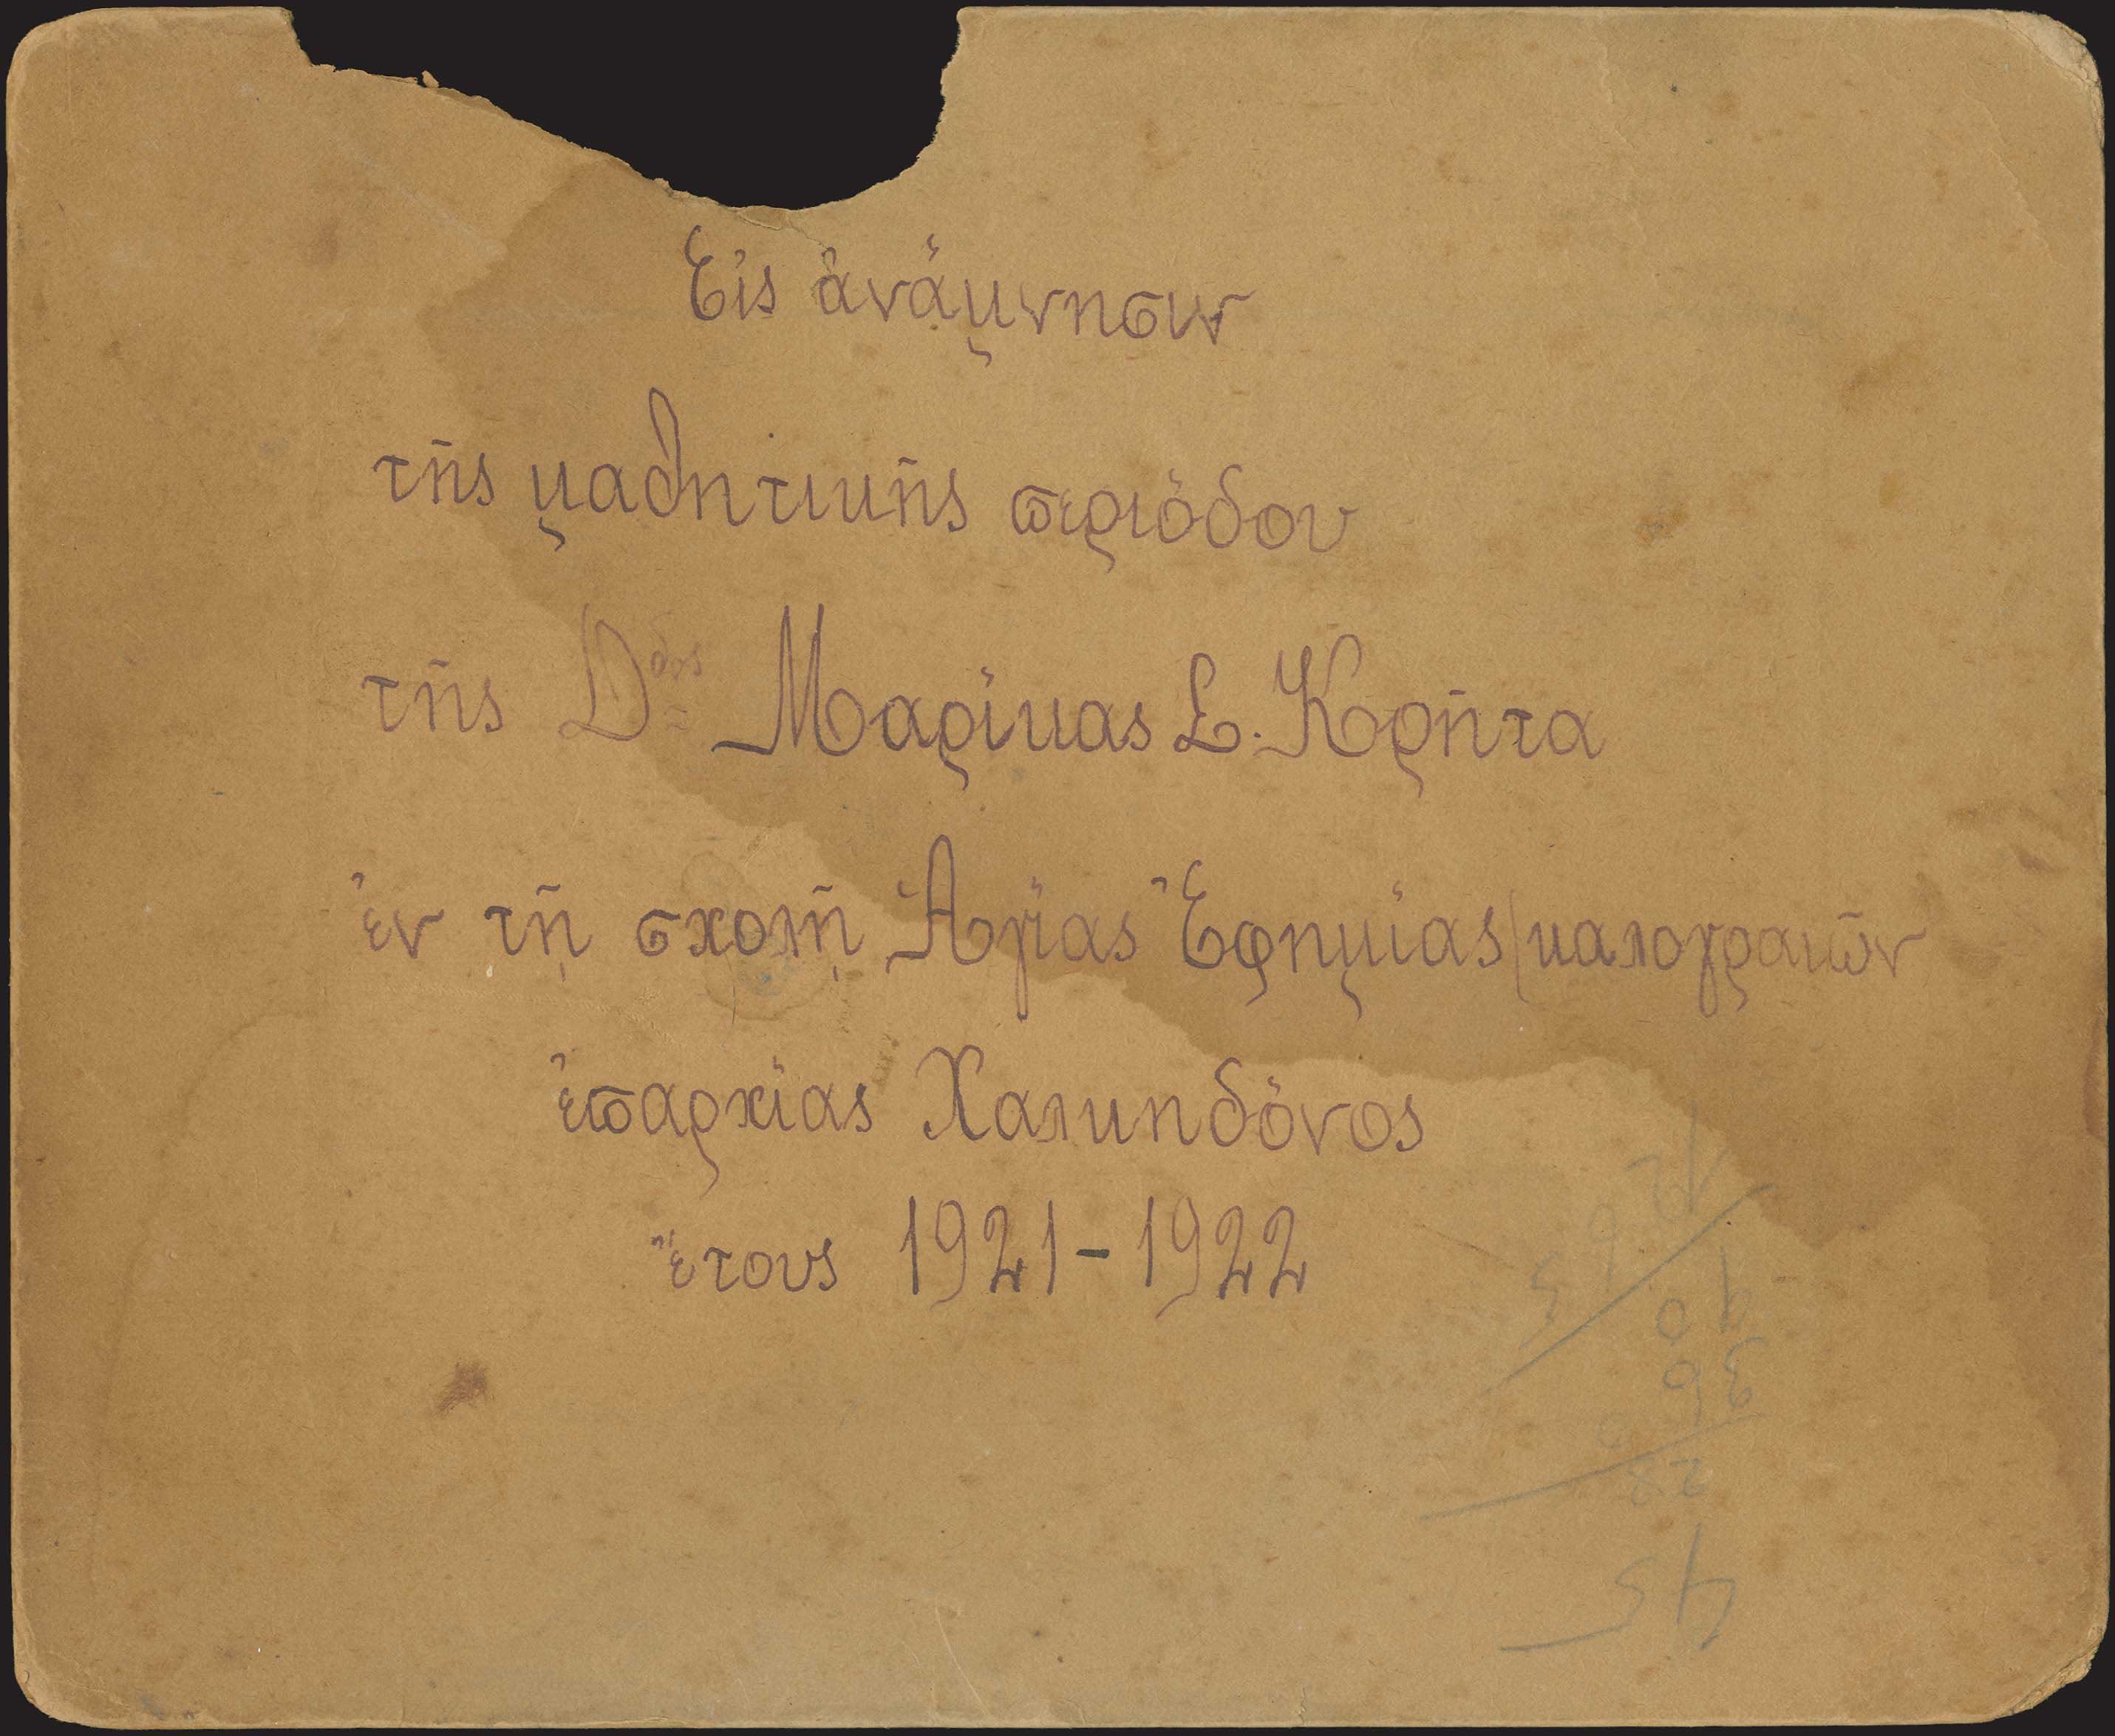 Εἰς ἀνάμνησιν
τῆς μαθητικῆς περιόδου
τῆς Δδος Μαρίκας Σ. Κρήτα
ἐν τῇ σχολῇ Ἁγίας Ἐφημίας (καλογραιῶν
ἐπαρχίας Χαλκηδόνος
ἔτους 1921-1922
10
36
28
45